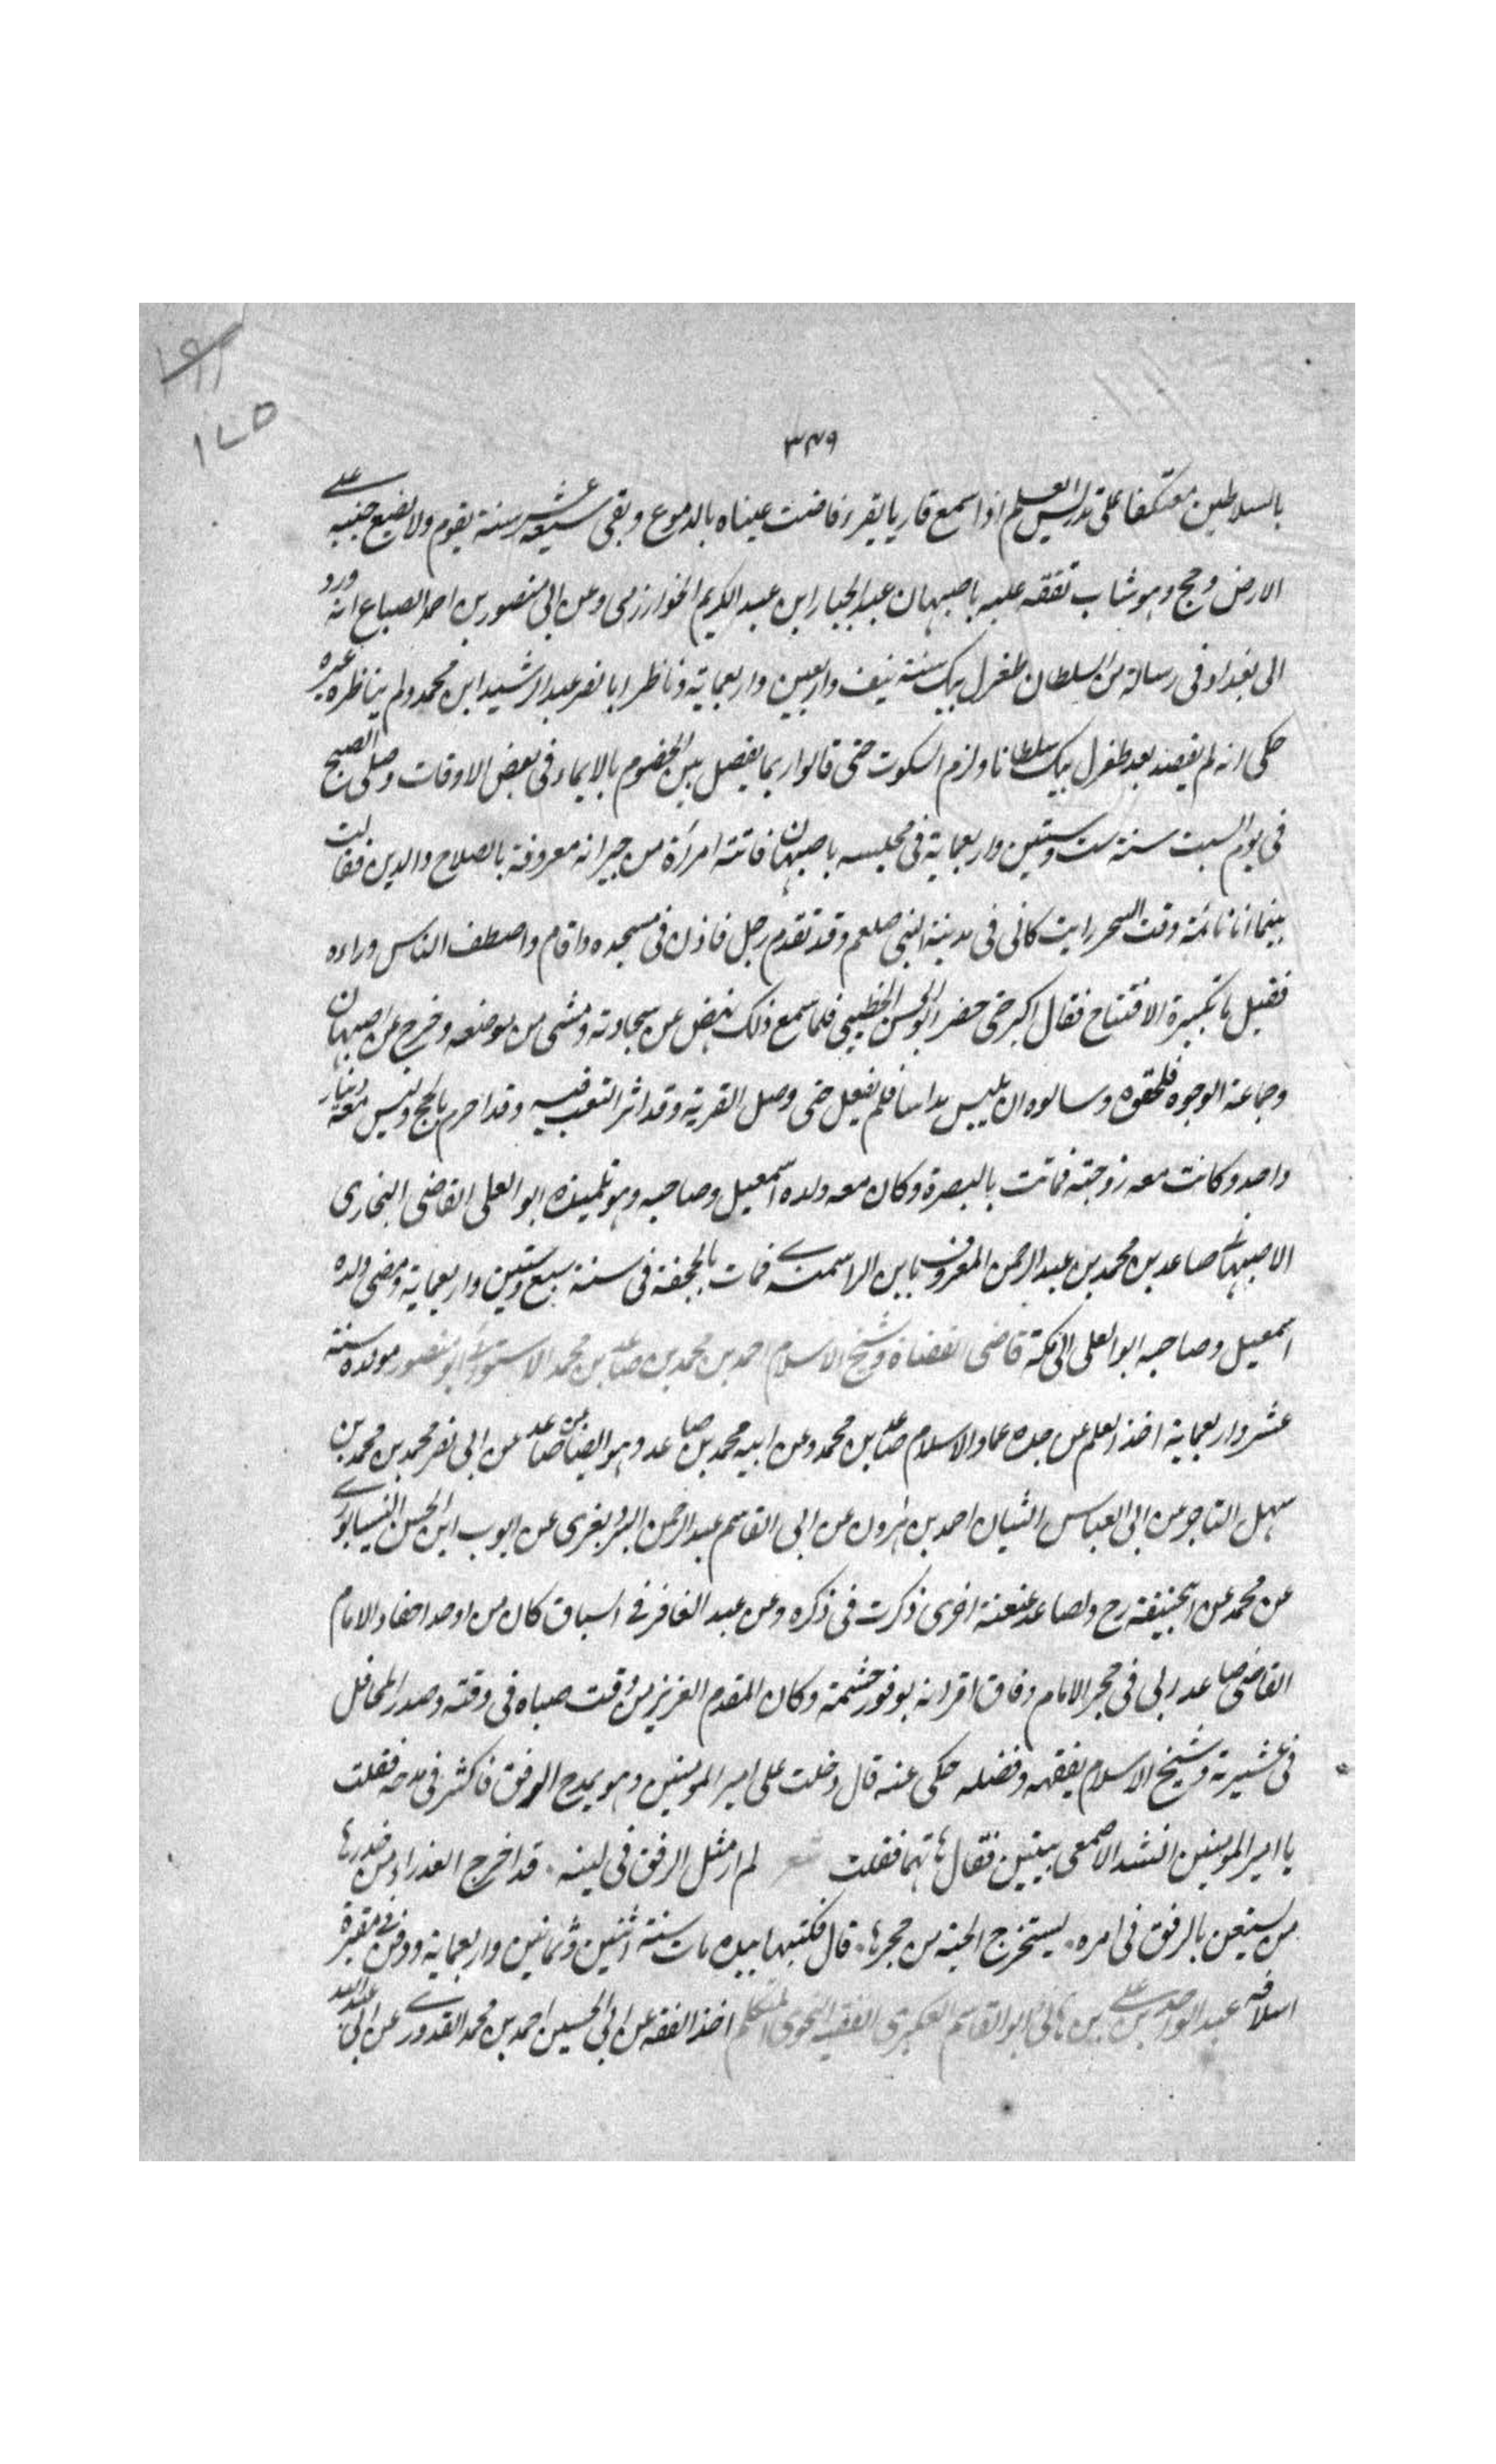 ١٧٥
٣٤٩
بالسلاطين معتكفا على تدريس العلم اذا سمع قاريا يقرء فاضت عيناه بالدموع وبقى سبعة عشر سنة يقوم ولا يضع جنبيه على
الارض وحج وهو شاب تفقه عليه باصبهان عبد الجبار ابن عبد الكريم الخوارزمى وعن ابى منصور بن احمد الصباع انه ورد
الى بغداد فى رسالة من السلطان طغرل بيك سنة نيف واربعين واربعماية وناظر ابا نصر عبد الرشيد ابن محمد ولم يناظره غيره
حكى انه لم يقصد بعد طغرل بيك سلطانا ولزم السكوت حتى قالوا ربما يفصل بين الخصوم بالايماء فى بعض الاوقات وصلى الصبح
فى يوم السبت سنة ست وستين واربعماية فى مجلسه باصبهان فاتته امرأة من جيرانه معروفة بالصلاح والدين فقالت
بينما انا نائمة وقت السحر رايت كانى فى مدينة النبى صلعم وقد تقدم رجل فاذن فى مسجده واقام واصطف الناس وراءه
فقيل ما تكبيرة الافتتاح فقال اكبر حتى حضر ابو الحسن الخطيبى فلما سمع ذلك نهض عن سجادته ومشى من موضعه وخرج عن اصبهان
وجماعة الوجوه فلحقوه وسالوه ان يلبس مداسا فلم يفعل حتى وصل القرية وقد اثر التعب فيه وقد احرم بالحج وليس معه دينار
واحد وكانت معه زوجته فماتت بالبصرة وكان معه ولده اسمعيل وصاحبه وهو تلميذه ابو العلى القاضى البخارى
الاصبهانى صاعد بن محمد بن عبد الرحمن المعروف بابن الراسمندى فمات بالجحفة فى سنة سبع وستين واربعماية ومضى ولده
اسمعيل وصاحبه ابو العلى الى مكة قاضى القضاة وشيخ الاسلام احمد بن محمد بن صاعد بن محمد الاستوائى ابو منصور مولده سنة
عشر واربعماية اخذ العلم عن جده عماد الاسلام صاعد بن محمد وعن ابيه محمد بن صاعد وهو ايضا عن صاعد عن ابى نصر محمد بن محمد بن
سهل التاجر عن ابى العباس التبان احمد بن هرون عن ابى القاسم عبد الرحمن البزديغرى عن ايوب ابن الحسن النيسابورى
عن محمد عن ابيحنيفة رح ولصاعد عنعنة اخرى ذكرت فى ذكره وعن عبد الغافر فى السياق كان من اوحد احفاد الامام
القاضى صاعد ربى فى حجر الامام وفاق اقرانه بوفور حشمة وكان المقدم العزيز من وقت صباه فى وقته وصدر المحافل
فى عشيرته وشيخ الاسلام بفقهه وفضله حكى عنه قال دخلت على امير المومنين وهو يمدح الرفق فاكثر فى مدحه فقلت
يا امير المومنين انشد الاصمعى بيتين فقال هاتهما فقلت شعر لم ار مثل الرفق فى لينه قد اخرج العذراء من خدرها
من يستعن بالرفق فى امره يستخرج الحية من جحرها قال فكتبها بيده مات سنة اثنين وثمانين واربعماية ودفن فى مقبرة
اسلافه عبد الواحد بن على بن هانى ابو القاسم العكبرى الفقيه النحوى المتكلم اخذ الفقه عن ابى الحسين احمد بن محمد القدورى عن ابى عبد الله